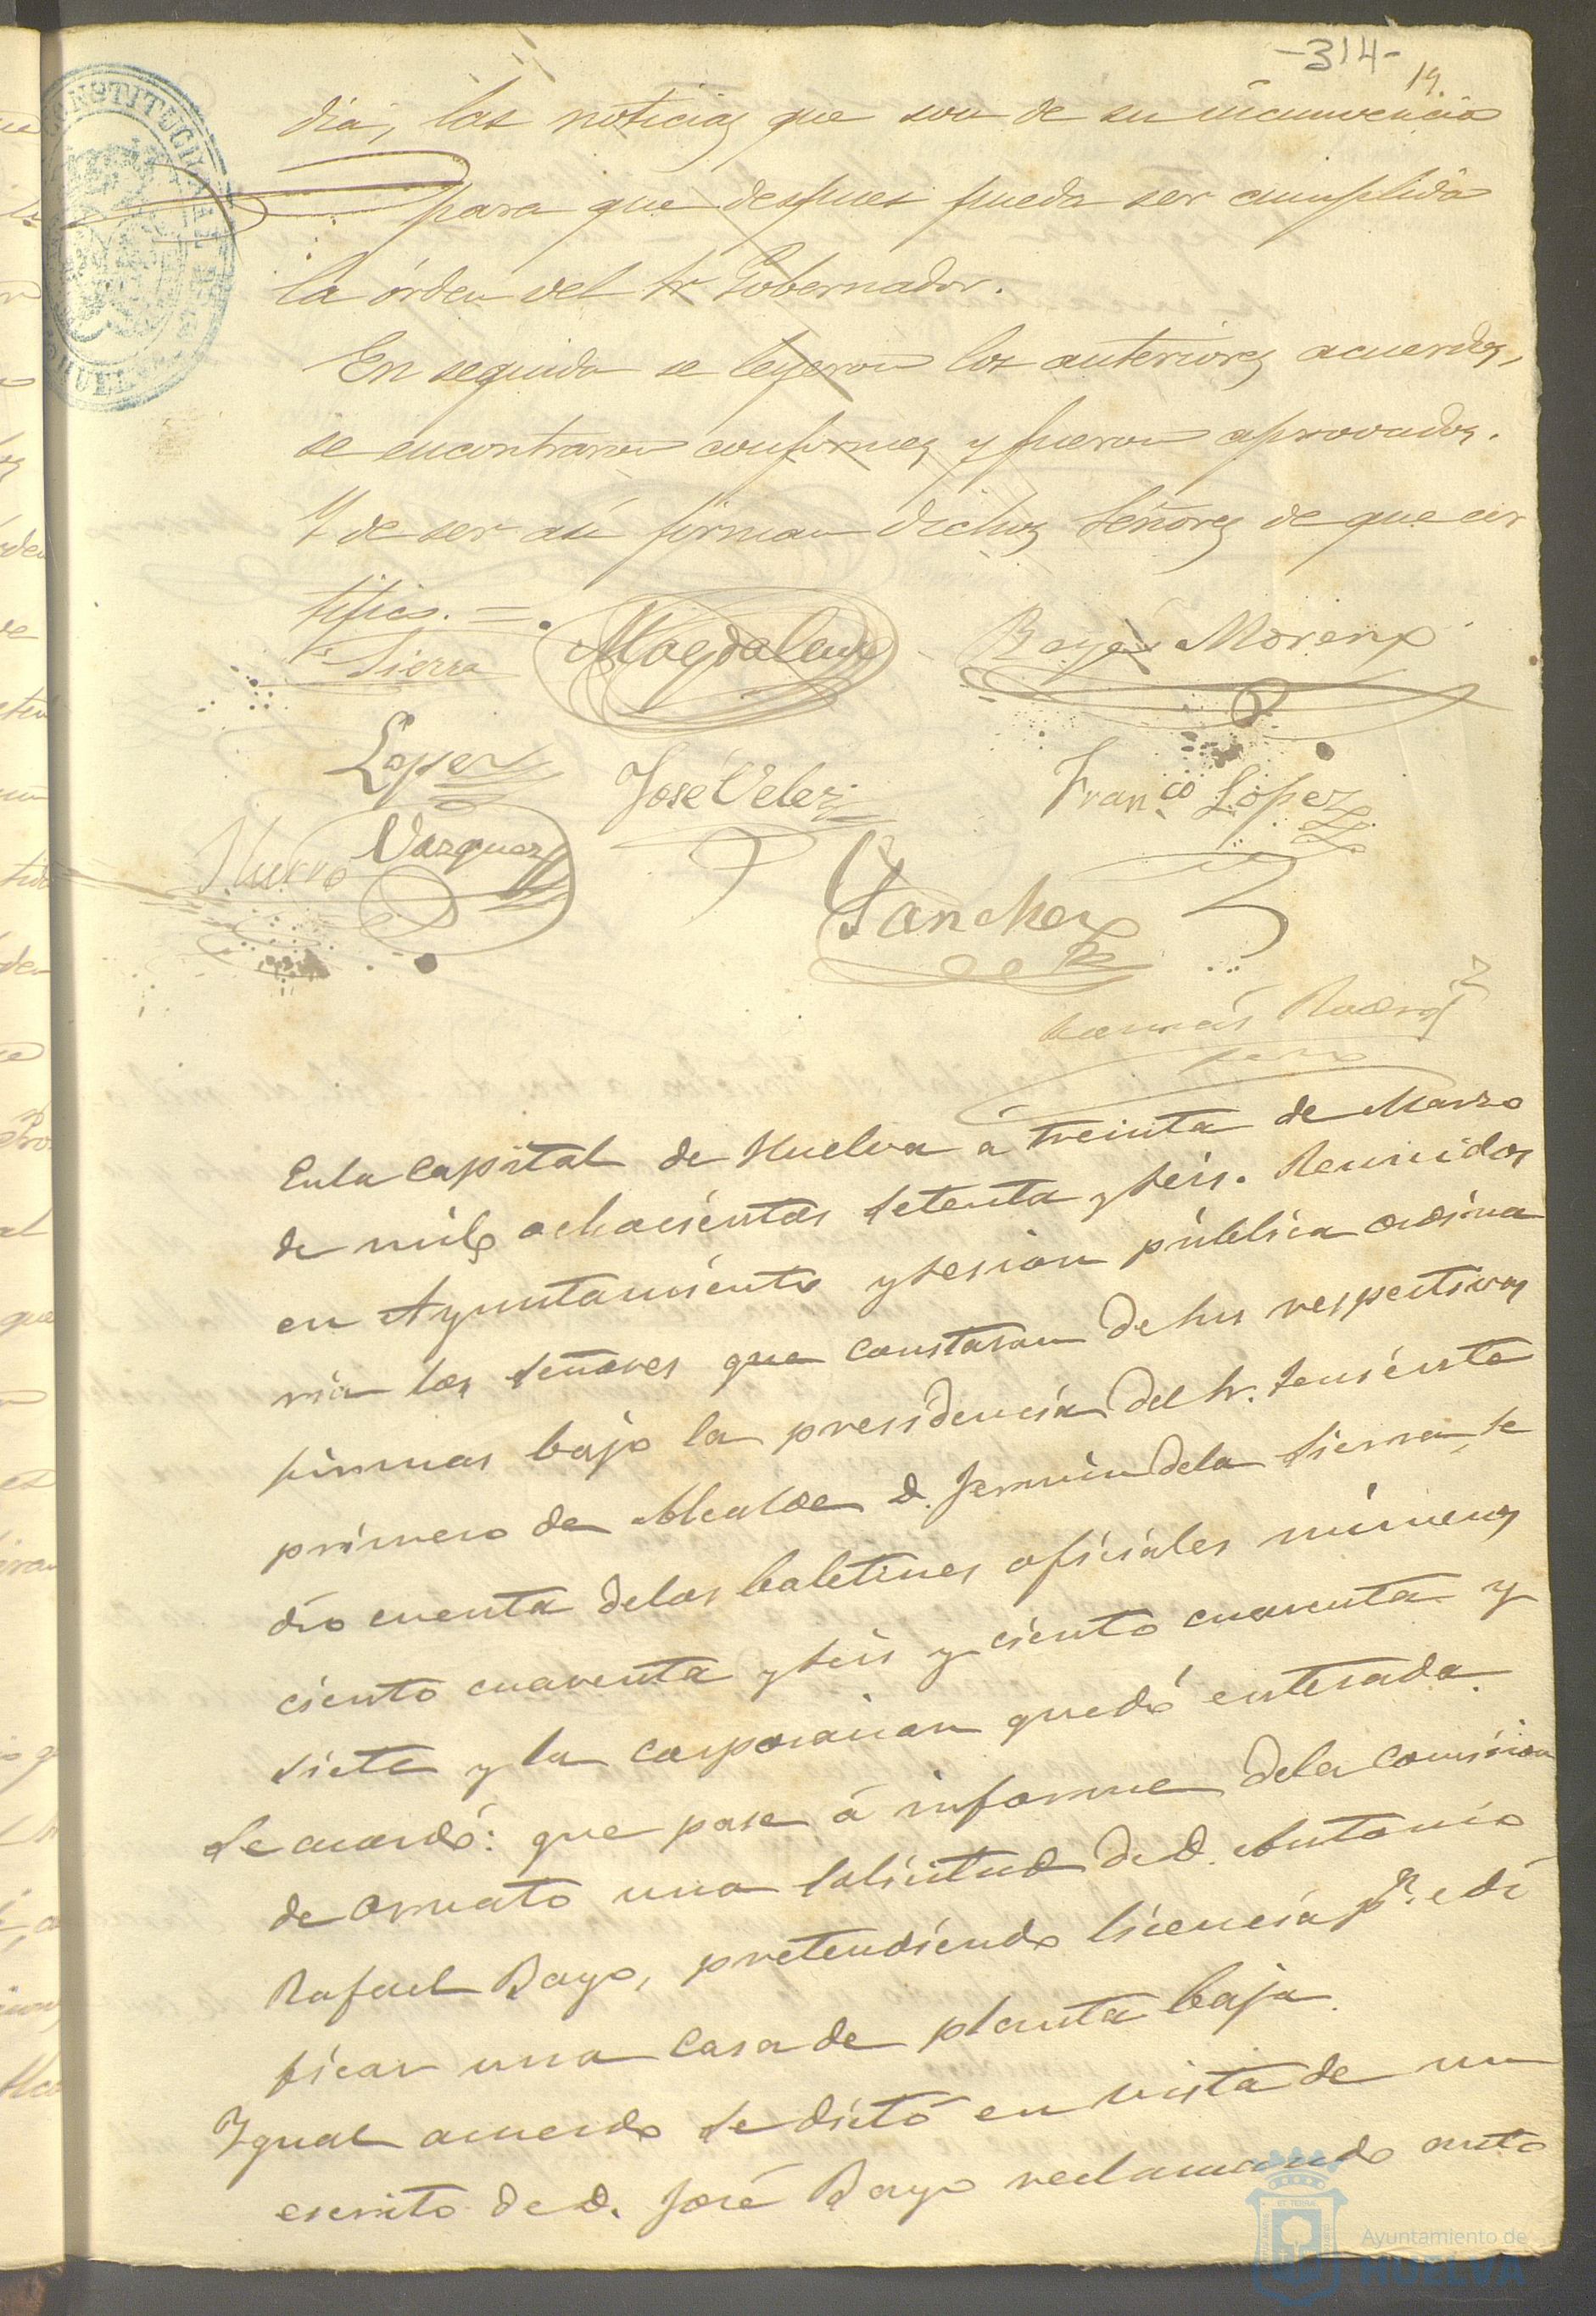 -314-
19.
dia, las noticias que son de su incunvencia
para que despues pueda ser cumplida
la órden del Sr Gobernador.
En seguida se leyeron los anteriores acuerdos,
se encontraron conformes y fueron aprovados.
Y de ser así firman dichos Señores de que cer
tifico. =
Sierra Magdalena Moreno
Lopez José Velez Franco Lopez
Vazquez
Sanchez
Tomás
En la Capital de Huelva á treinta de Marzo
de mil ochocientos setenta y seis. Reunidos
en Ayuntamiento y sesion pública ordina
ria los Señores que constaran de sus respectivas
firmas bajo la presidencia del Sr. Teniente
primero de Alcalde D. Fermin de la Sierra se
dió cuenta de los boletines oficiales números
ciento cuarenta y seis y ciento cuarenta y
siete y la corporacion quedó enterada.
Se acordó: que pase á informe de la Comision
de Ornato una solicitud de D. Antonio
Rafael Bayo, pretendiendo licencia pa. edi
ficar una Casa de planta baja.
Igual acuerdo se dictó en vista de un
escrito de D. José Bayo reclamando ante
CONSTITUCIONAL
HUELVA
Ayuntamiento de
HUELVA